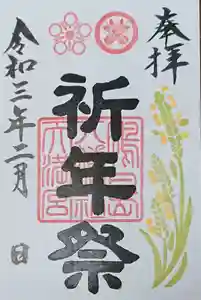 奉拝
祈年祭
令和三年二月 日